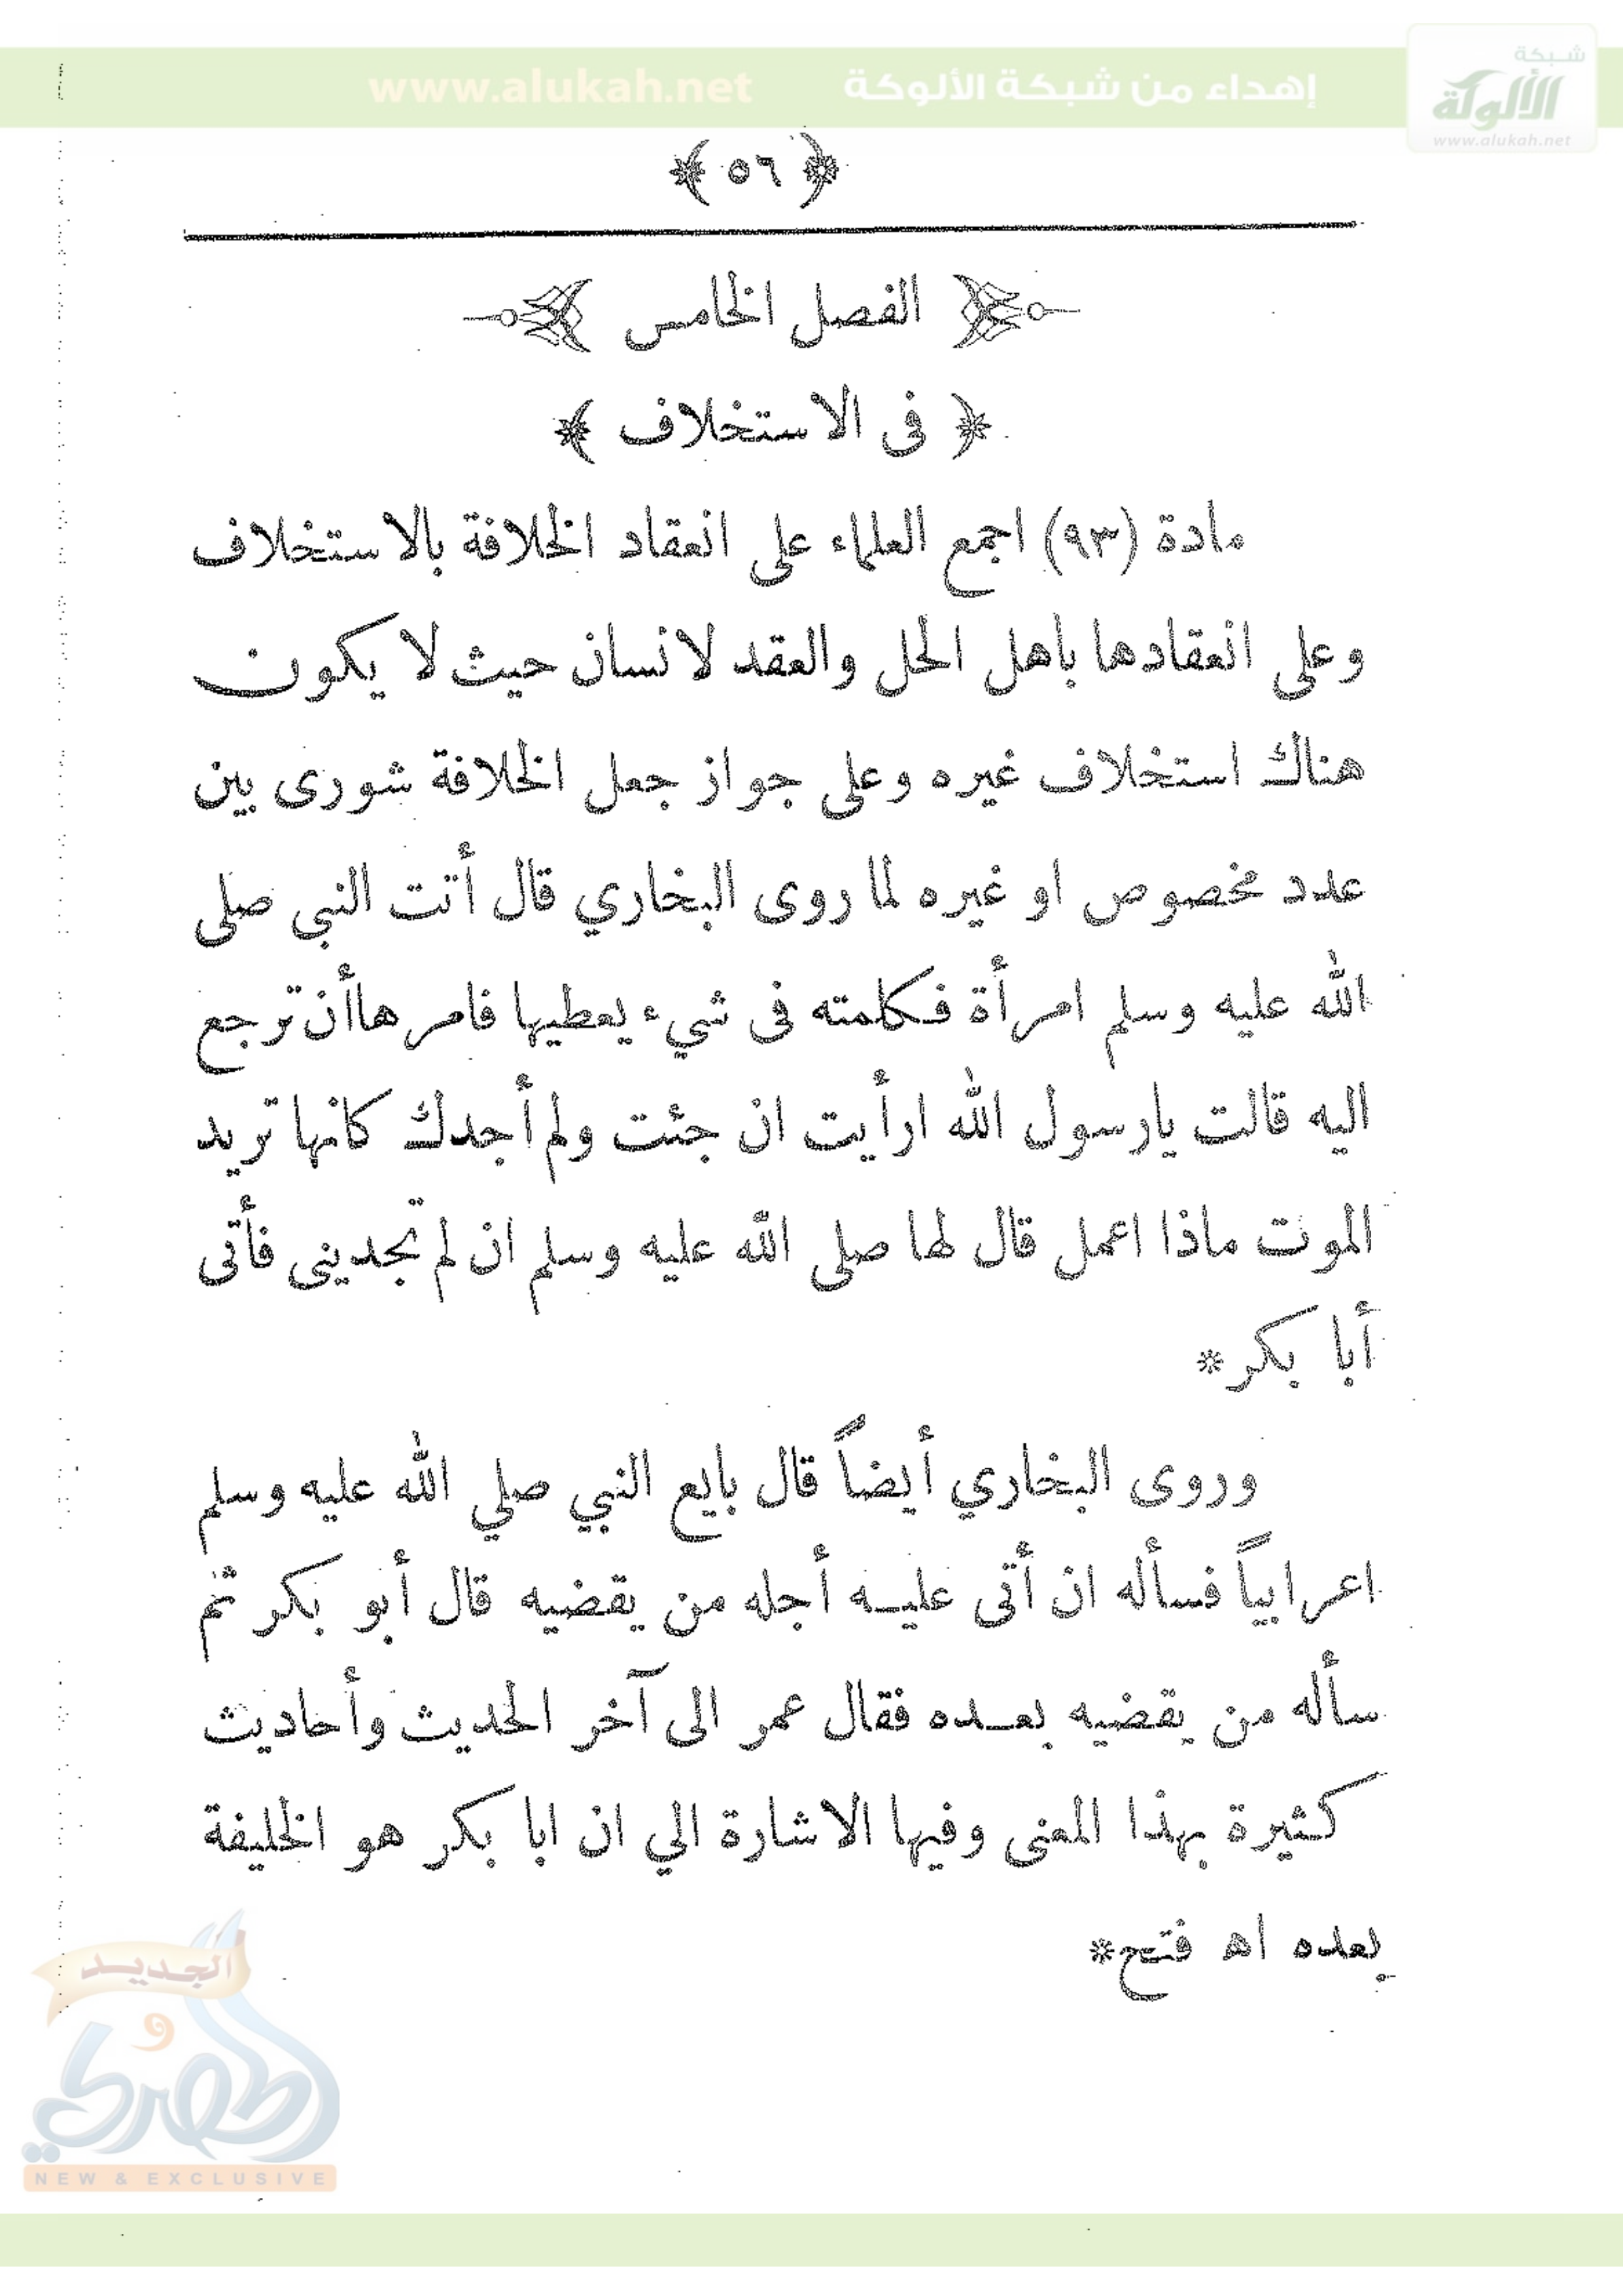 إهداء من شبكة الألوكة www.alukah.net
شبكة
الألوكة
www.alukah.net
﴿ ٥٦ ﴾
﴿ الفصل الخامس ﴾
﴿ فى الاستخلاف ﴾
مادة (٩٣) اجمع العلماء على انعقاد الخلافة بالاستخلاف
وعلى انعقادها بأهل الحل والعقد لانسان حيث لا يكون
هناك استخلاف غيره وعلى جواز جعل الخلافة شورى بين
عدد مخصوص او غيره لما روى البخاري قال أتت النبي صلى
الله عليه وسلم امرأة فكلمته فى شيء يعطيها فامرها أن ترجع
اليه قالت يارسول الله ارأيت ان جئت ولم أجدك كانها تريد
الموت ماذا اعمل قال لها صلى الله عليه وسلم ان لم تجدينى فأتى
أبا بكر *
وروى البخاري أيضاً قال بايع النبي صلي الله عليه وسلم
اعرابياً فسأله ان أتى عليه أجله من يقضيه قال أبو بكر ثم
سأله من يقضيه بعده فقال عمر الى آخر الحديث وأحاديث
كثيرة بهذا المعنى وفيها الاشارة الي ان ابا بكر هو الخليفة
بعده اه فتح *
الجديد
و
الحصري
NEW & EXCLUSIVE